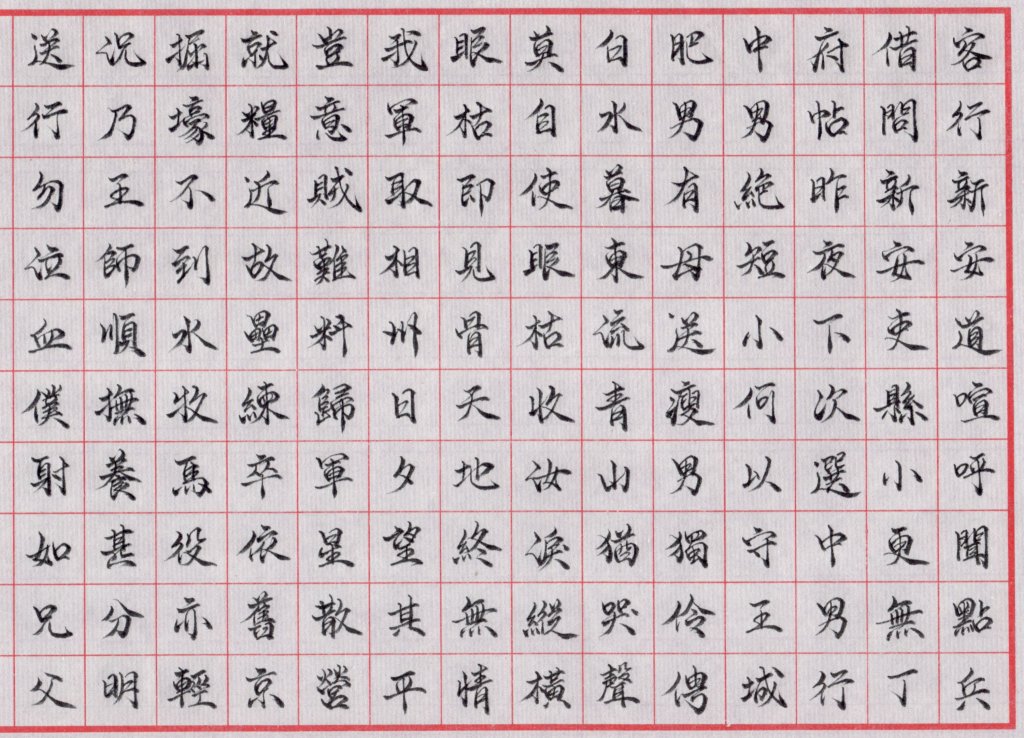 客行新安道喧呼聞點兵
借問新安吏縣小更無丁
府帖昨夜下次選中男行
中男絶短小何以守王城
肥男有母送瘦男獨伶俜
白水暮東流青山猶哭聲
莫自使眼枯收汝淚縱橫
眼枯即見骨天地終無情
我軍取相州日夕望其平
豈意賊難料歸軍星散營
就糧近故壘練卒依舊京
掘壕不到水牧馬役亦輕
況乃王師順撫養甚分明
送行勿泣血僕射如兄父